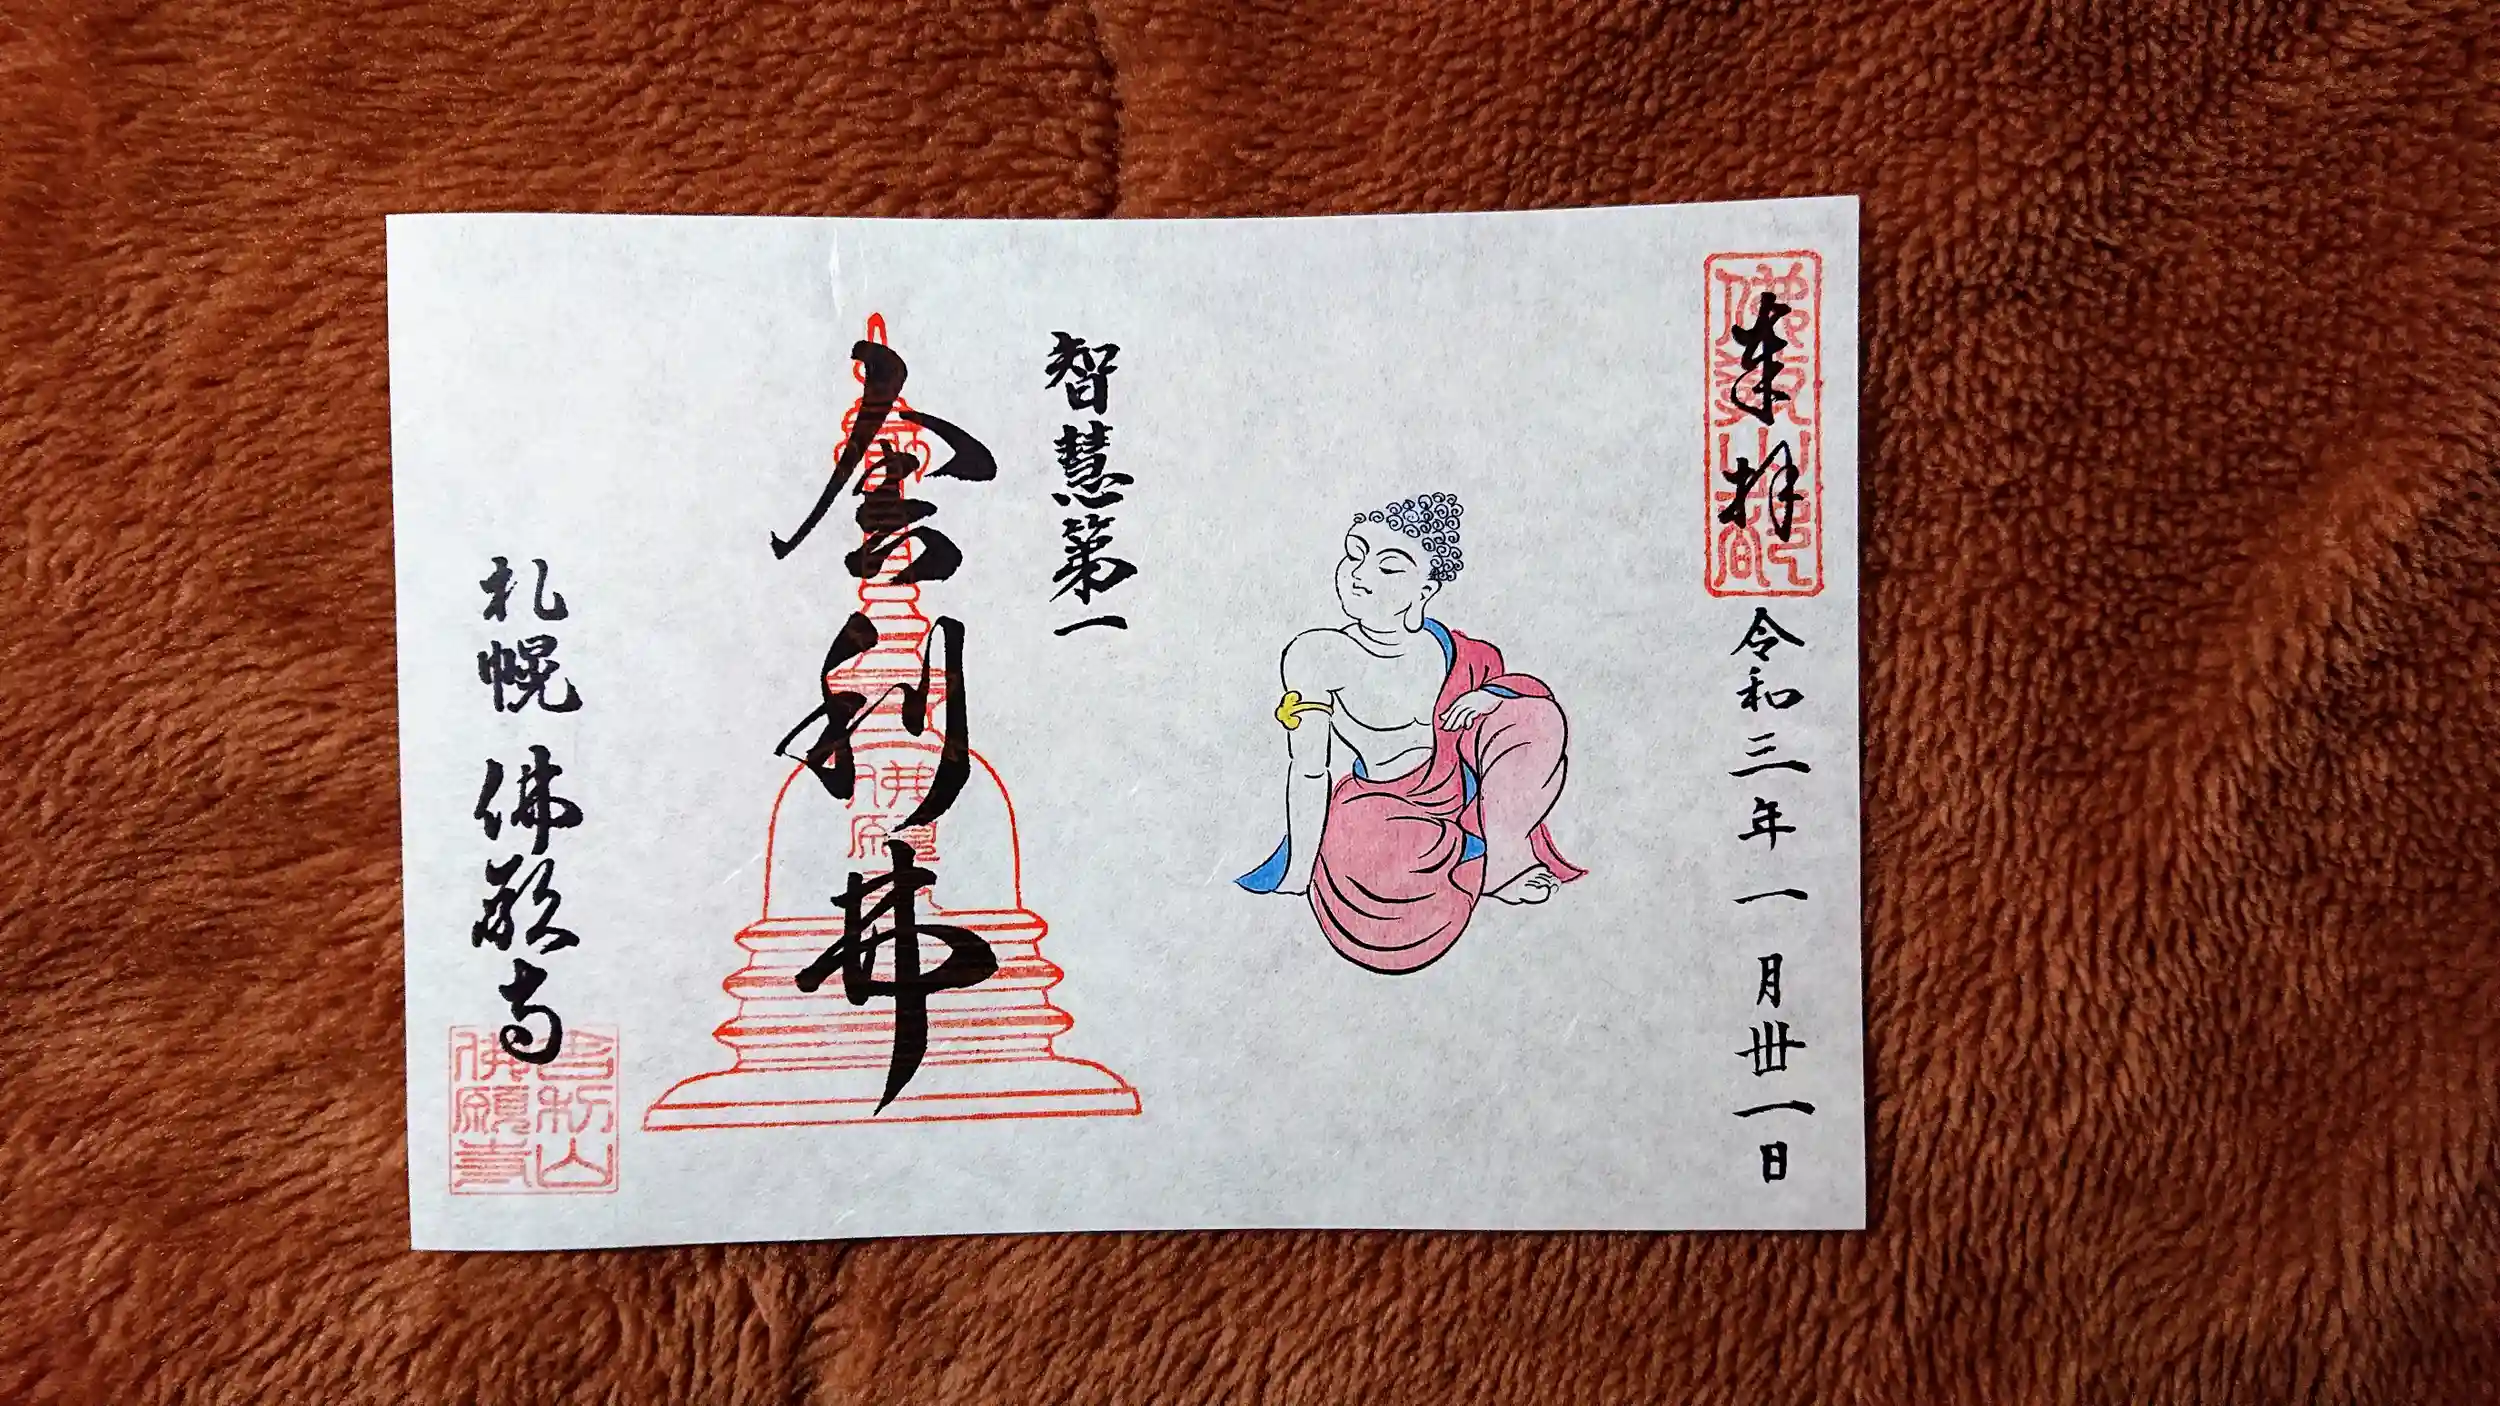 奉拝
令和三年一月卅一日
智慧第一
舎利弗
札幌 佛願寺
佛願
佛願寺